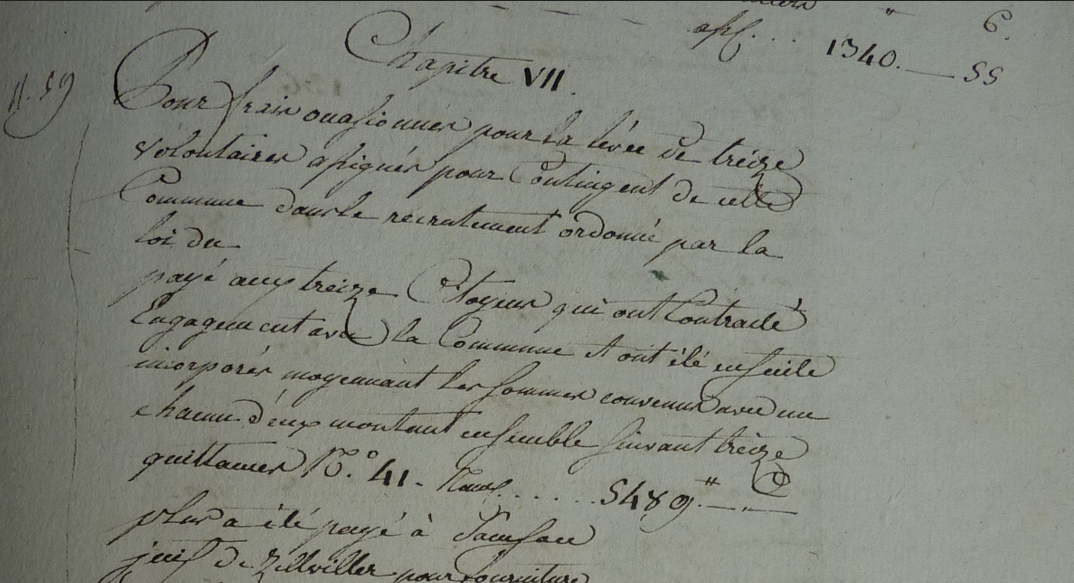 6.
1340. — 55
Chapitre VII.
n. 59
Pour frais occasionnés pour la levée de treize
volontaires assignés pour Contingent de cette
Commune dans le recrutement ordonné par la
loi du
payé aux treize Citoyens qui ont Contracté
Engagement avec la Commune et ont été ensuite
incorporés moyennant les sommes convenues avec un
chacun d'eux montant ensemble suivant treize
quittances N.° 41 - ..... 5489.# —
plus a été payé à
juif de Zellviller pour fourniture